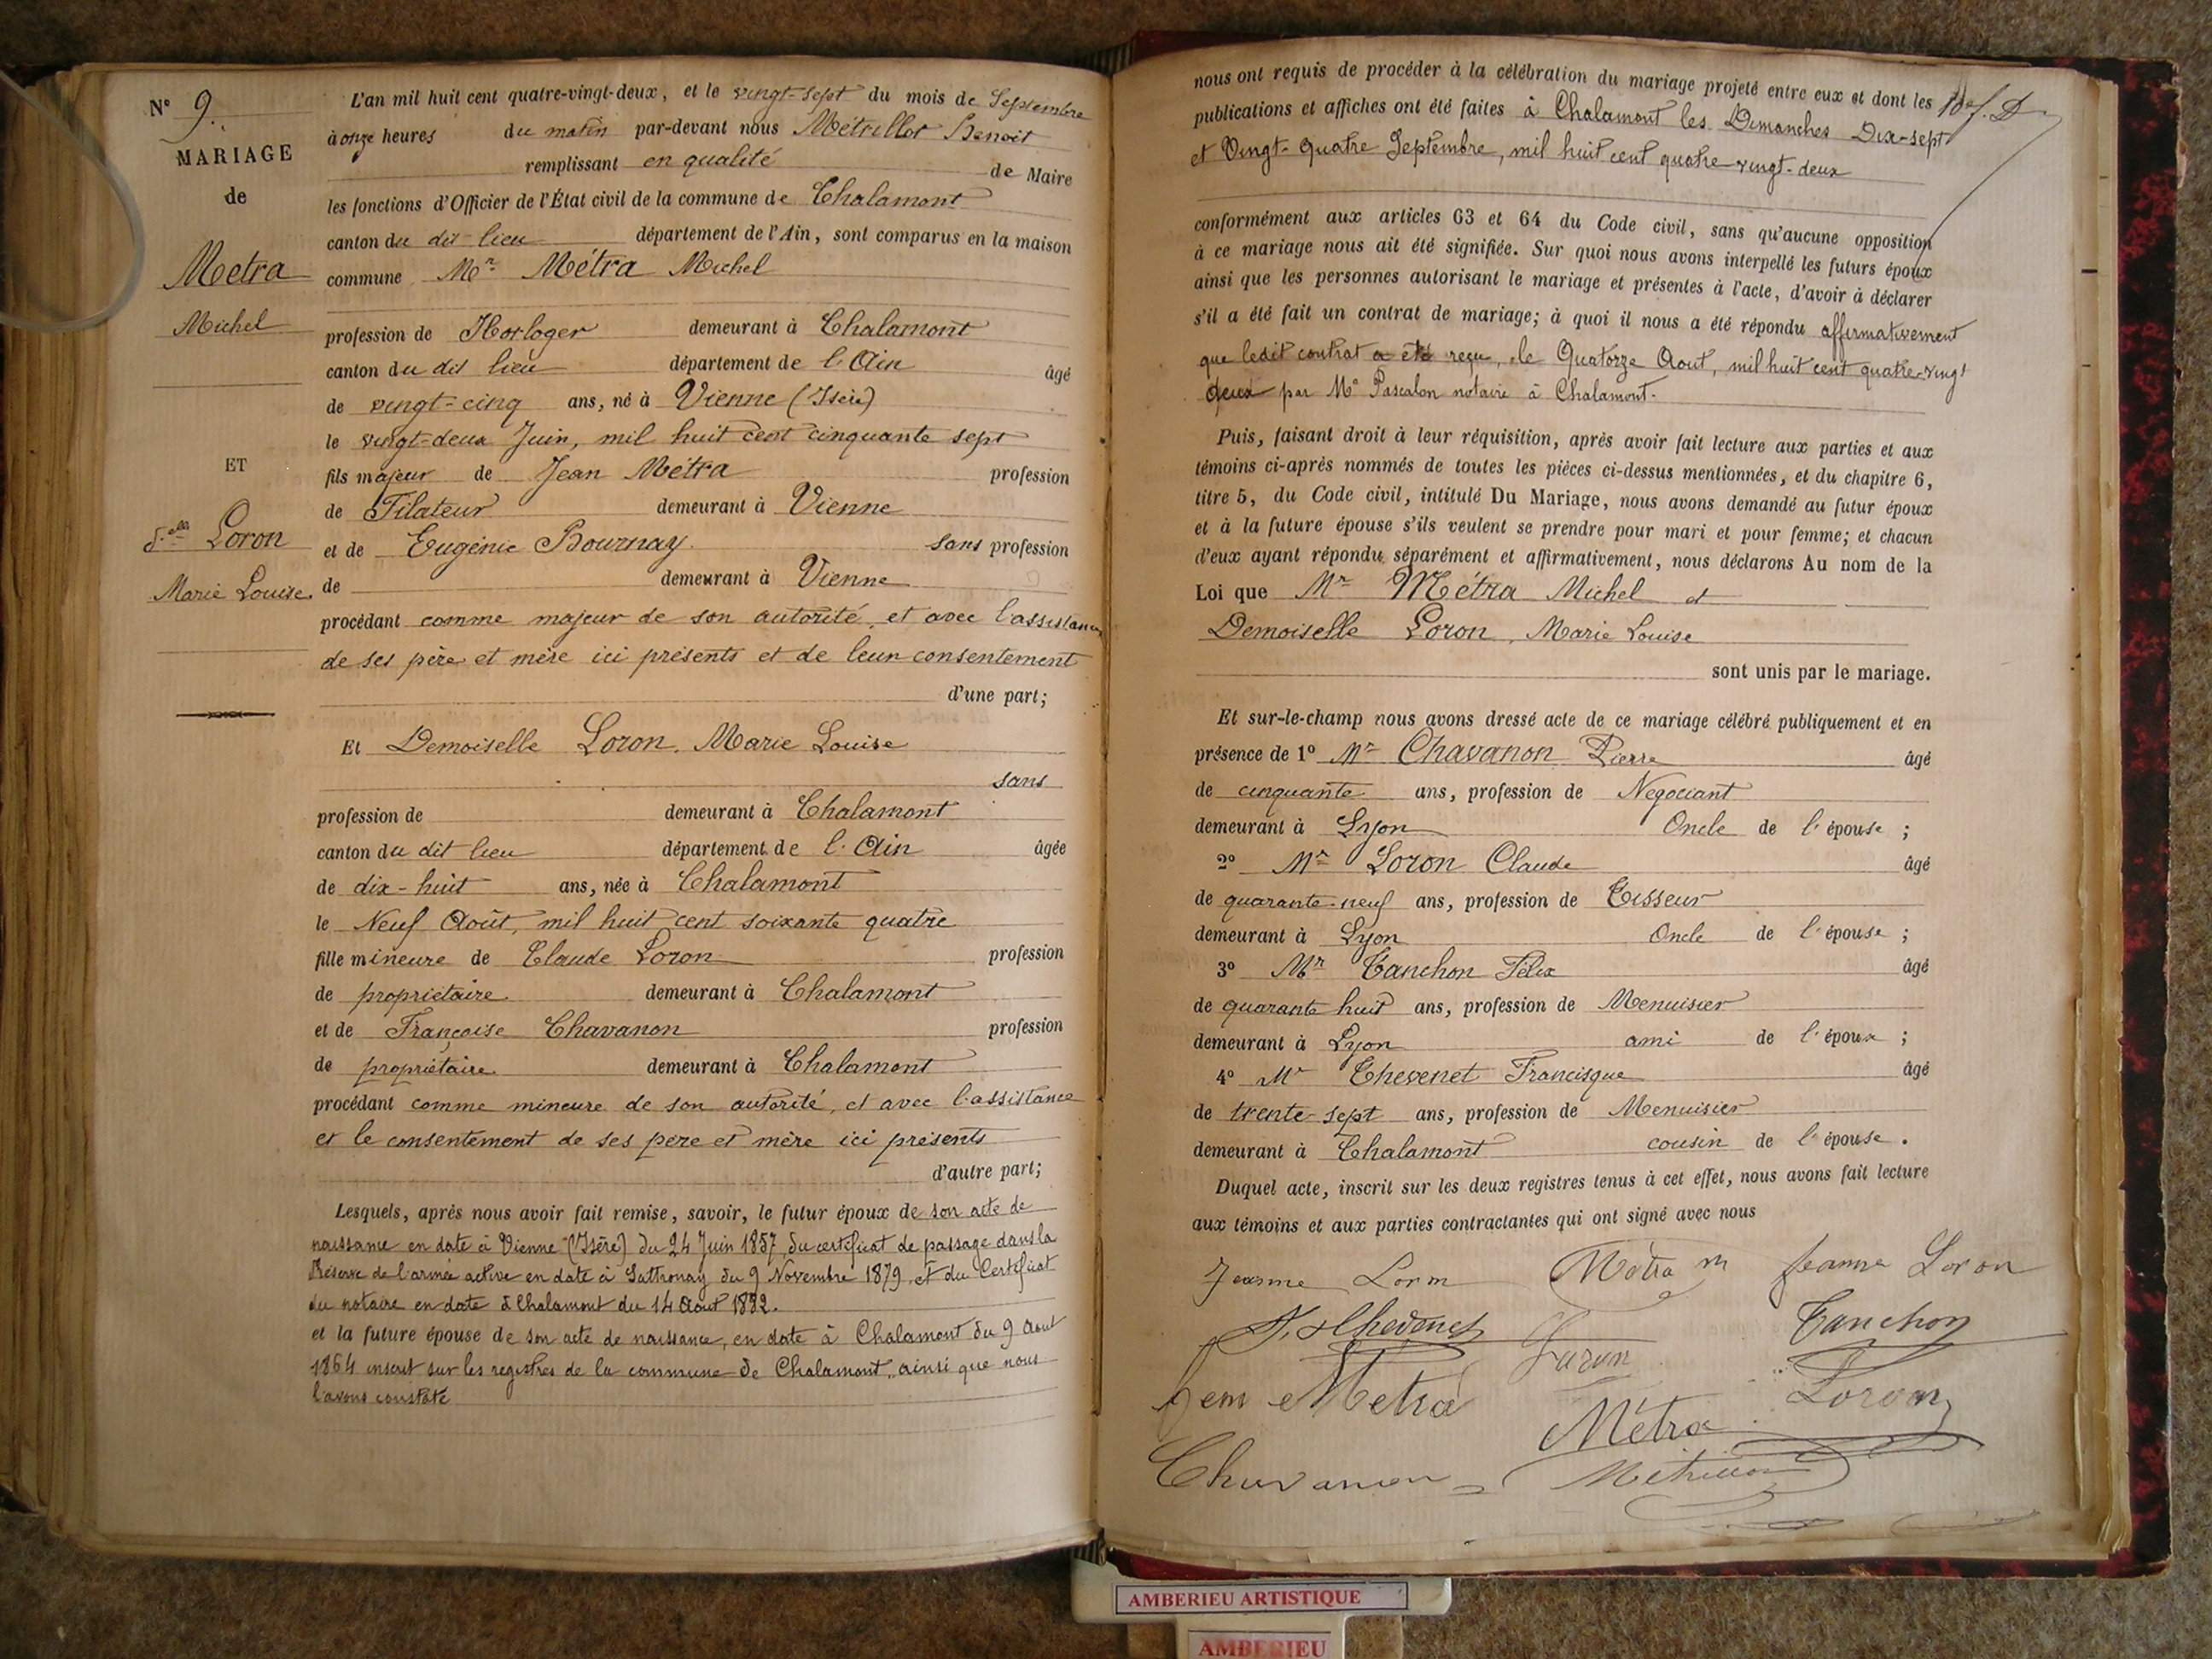 N° 9.
MARIAGE
de
Metra
Michel
ET
d.elle Loron
Marie Louise.
L'an mil huit cent quatre-vingt-deux, et le vingt-sept du mois de Septembre
à onze heures du matin par-devant nous Métrillot Benoit
remplissant en qualité de Maire
les fonctions d'Officier de l'État civil de la commune de Chalamont
canton du dit lieu département de l'Ain, sont comparus en la maison
commune Mr Métra Michel
profession de Horloger demeurant à Chalamont
canton du dit lieu département de l'Ain âgé
de vingt-cinq ans, né à Vienne (Isère)
le vingt-deux Juin, mil huit cent cinquante sept
fils majeur de Jean Métra profession
de Filateur demeurant à Vienne
et de Eugénie Bournay. sans profession
de demeurant à Vienne
procédant comme majeur de son autorité, et avec l'assistance
de ses père et mère ici présents et de leur consentement
d'une part;
Et Demoiselle Loron. Marie Louise
sans
profession de demeurant à Chalamont
canton du dit lieu département de l'Ain âgée
de dix-huit ans, née à Chalamont
le Neuf Août, mil huit cent soixante quatre
fille mineure de Claude Loron profession
de propriétaire demeurant à Chalamont
et de Françoise Chavanon profession
de propriétaire demeurant à Chalamont
procédant comme mineure de son autorité, et avec l'assistance
et le consentement de ses père et mère ici présents
d'autre part;
Lesquels, après nous avoir fait remise, savoir, le futur époux de son acte de
naissance en date à Vienne (Isère) du 24 Juin 1857, du certificat de passage dans la
Réserve de l'armée active en date à Sathonay du 9 Novembre 1879, et du Certificat
du notaire en date à Chalamont du 14 Aout 1882.
et la future épouse de son acte de naissance, en date à Chalamont du 9 Aout
1864 inscrit sur les registres de la commune de Chalamont, ainsi que nous
l'avons constaté
nous ont requis de procéder à la célébration du mariage projeté entre eux et dont les
publications et affiches ont été faites à Chalamont les Dimanches Dix-sept
et Vingt-quatre Septembre, mil huit cent quatre-vingt-deux
conformément aux articles 63 et 64 du Code civil, sans qu'aucune opposition
à ce mariage nous ait été signifiée. Sur quoi nous avons interpellé les futurs époux
ainsi que les personnes autorisant le mariage et présentes à l'acte, d'avoir à déclarer
s'il a été fait un contrat de mariage; à quoi il nous a été répondu affirmativement
que ledit contrat a été reçu, le Quatorze Aout, mil huit cent quatre-vingt
deux par Me Pascalon notaire à Chalamont.
Puis, faisant droit à leur réquisition, après avoir fait lecture aux parties et aux
témoins ci-après nommés de toutes les pièces ci-dessus mentionnées, et du chapitre 6,
titre 5, du Code civil, intitulé Du Mariage, nous avons demandé au futur époux
et à la future épouse s'ils veulent se prendre pour mari et pour femme; et chacun
d'eux ayant répondu séparément et affirmativement, nous déclarons Au nom de la
Loi que Mr Métra Michel et
Demoiselle Loron, Marie Louise
sont unis par le mariage.
Et sur-le-champ nous avons dressé acte de ce mariage célébré publiquement et en
présence de 1° Mr Chavanon Pierre âgé
de cinquante ans, profession de Negociant
demeurant à Lyon Oncle de l'épouse ;
2° Mr Loron Claude âgé
de quarante-neuf ans, profession de Tisseur
demeurant à Lyon Oncle de l'épouse ;
3° Mr Tanchon Félix âgé
de quarante huit ans, profession de Menuisier
demeurant à Lyon ami de l'époux ;
4° Mr Thevenet Francisque âgé
de trente-sept ans, profession de Menuisier
demeurant à Chalamont cousin de l'épouse.
Duquel acte, inscrit sur les deux registres tenus à cet effet, nous avons fait lecture
aux témoins et aux parties contractantes qui ont signé avec nous
Jeanne Loron Métra m Jeanne Loron
Tanchon
Metra Loron
Métra
Chavanon Métrillot
AMBERIEU ARTISTIQUE
AMBERIEU